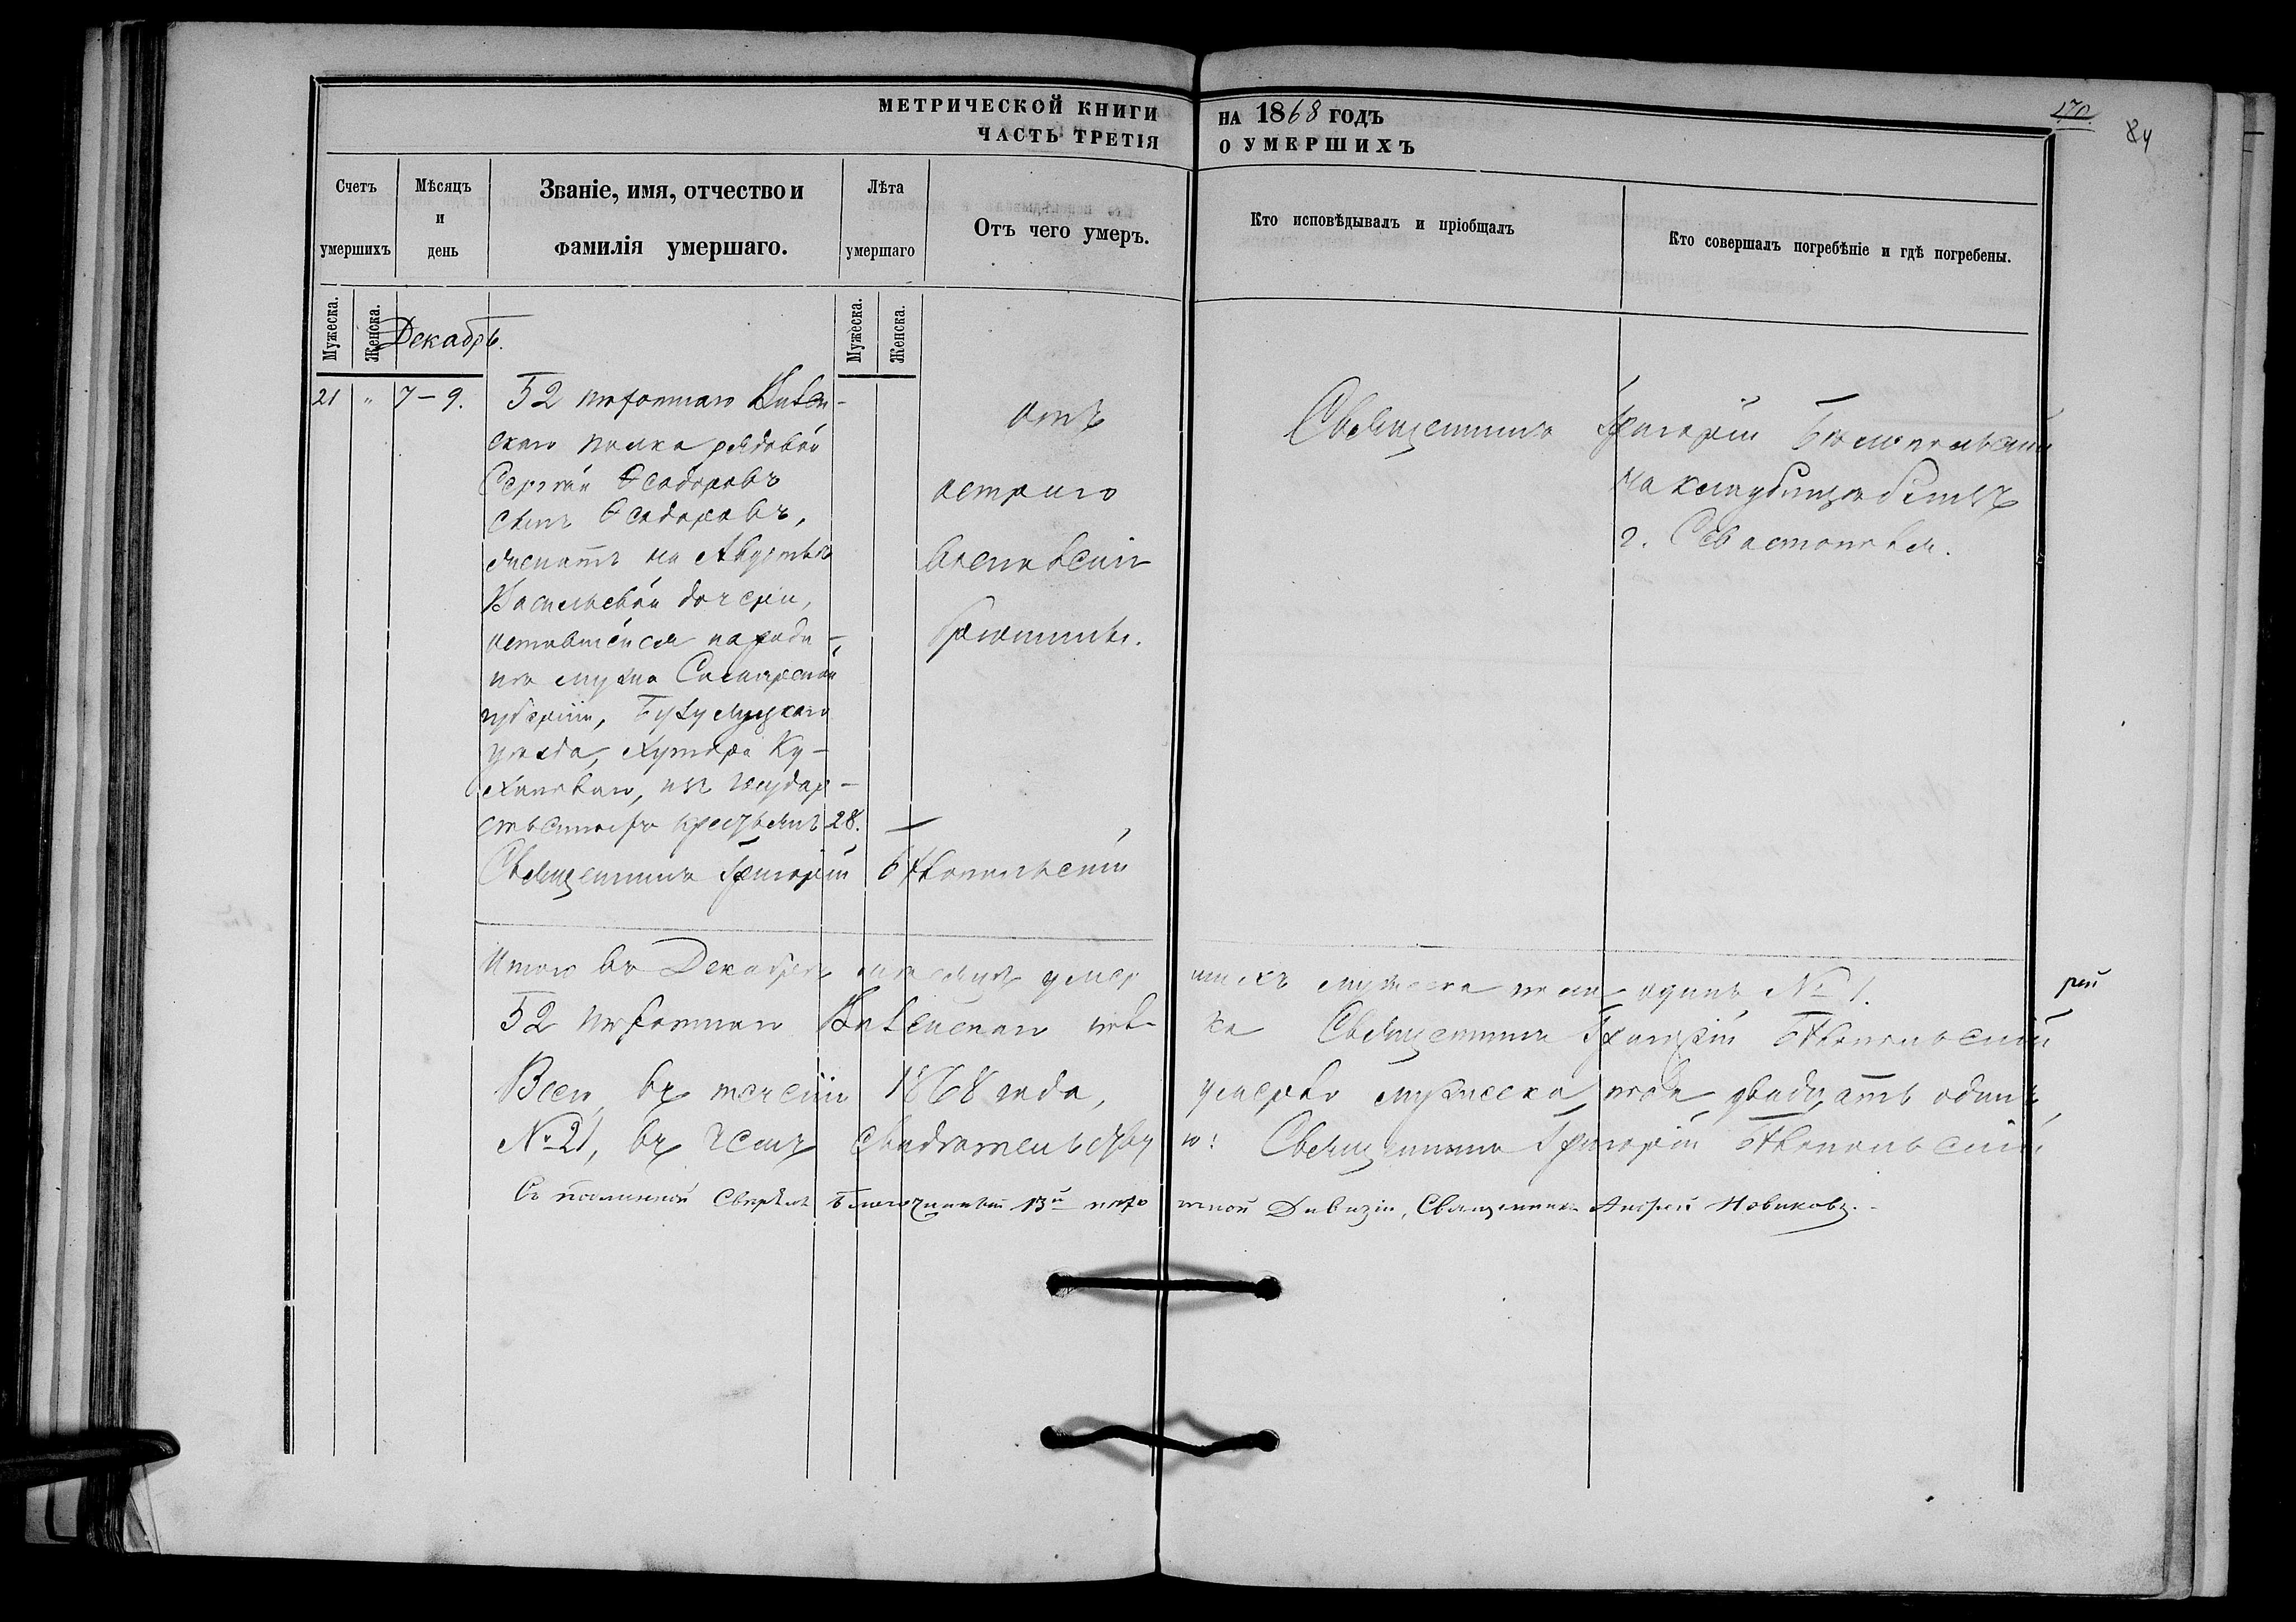 МЕТРИЧЕСКОЙ КНИГИ НА 1868 ГОДЪ
ЧАСТЬ ТРЕТІЯ О УМЕРШИХЪ
84
Счетъ умершихъ
Мѣсяцъ и день
Званіе, имя, отчество и фамилія умершаго.
Лѣта умершаго
Отъ чего умеръ.
Кто исповѣдывалъ и пріобщалъ
Кто совершалъ погребѣніе и гдѣ погребены.
Мужеска.
Женска.
Мужеска.
Женска.
Декабрь.
21 " 7-9.
52 пѣхотнаго Вилен-
скаго полка рядовой
Сергѣй Ѳеодоровъ
сынъ Ѳеодоровъ,
женатъ на
Васильевой дочери,
оставшейся на роди-
нѣ мужа Самарской
губерніи, Бузулуцкаго
уѣзда, хутора Ку-
, изъ государ-
ственныхъ крестьянъ 28.
отъ
остраго
воспаленія
брюшины.
Священникъ Григорій
на кладбищѣ
г. Севастополя.
Священникъ Григорій
Итого въ Декабрѣ мѣсяцѣ умер
шихъ мужеска пола одинъ № 1.
52 пѣхотнаго Виленскаго пол-
ка Священникъ Григорій
рей
Всего, въ теченіи 1868 года,
умерло мужеска пола двадцать одинъ,
№ 21, въ чемъ свидѣтельству
ю: Священникъ Григорій
Съ подлинной свѣрялъ Благочинный 13й пѣхо
тной Дивизіи, Священникъ Андрей Новиковъ.